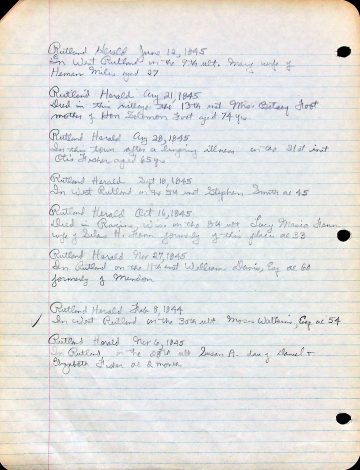 Rutland Herald June 12, 1845
In West Rutland on the 9th ult. Mary wife of
Heman Miles aged 27
Rutland Herald Aug 21, 1845
Died in this village the 13th inst Mrs. Betsey Foot
mother of Hon Solomon Foot aged 74 yrs
Rutland Herald Aug 28, 1845
In this town after a lingering illness on the 21st inst
Otis Fisher aged 65 yrs
Rutland Herald Sept 18, 1845
In West Rutland on the 5th inst Stephen Smith ae 45
Rutland Herald Oct 16, 1845
Died in Racine, Wisc on the 8th ult Lucy Maria
wife of Silas H. formerly of this place ae 33
Rutland Herald Nov 27, 1845
In Rutland on the 11th inst William Davis, Esq ae 60
formerly of Mendon
Rutland Herald Feb 8, 1844
In West Rutland on the 30th ult Moses Watkins, Esq ae 54
Rutland Herald Nov 6, 1845
In Rutland, on the 28th ult Susan A. dau of Daniel +
Elizabeth Fisher ae 2 months